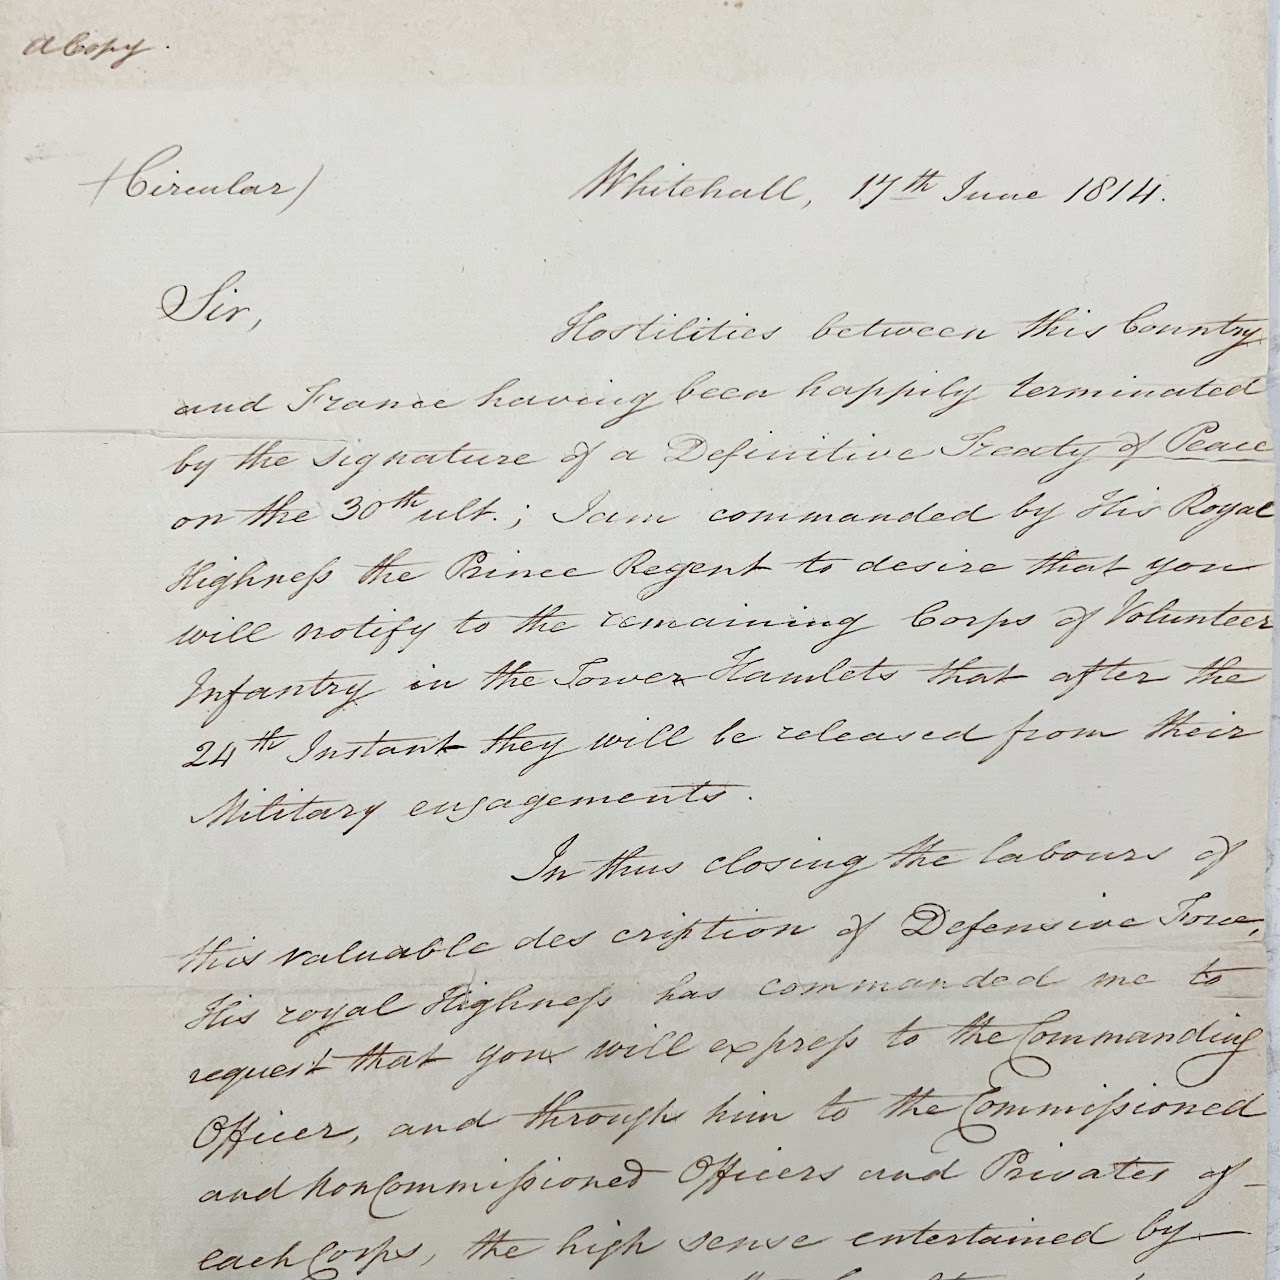 A Copy.
(Circular)
Whitehall, 17th June 1814.
Sir,
Hostilities between this Country
and France having been happily terminated
by the signature of a Definitive Treaty of Peace
on the 30th ult.; I am commanded by His Royal
Highneſs the Prince Regent to desire that you
will notify to the remaining Corps of Volunteer
Infantry in the Tower Hamlets that after the
24th Instant they will be released from their
Military engagements.
In thus closing the labours of
this valuable description of Defensive Force,
His royal Highneſs has commanded me to
request that you will expreſs to the Commanding
Officer, and through him to the Commiſsioned
and non Commiſsioned Officers and Privates of
each Corps, the high sense entertained by